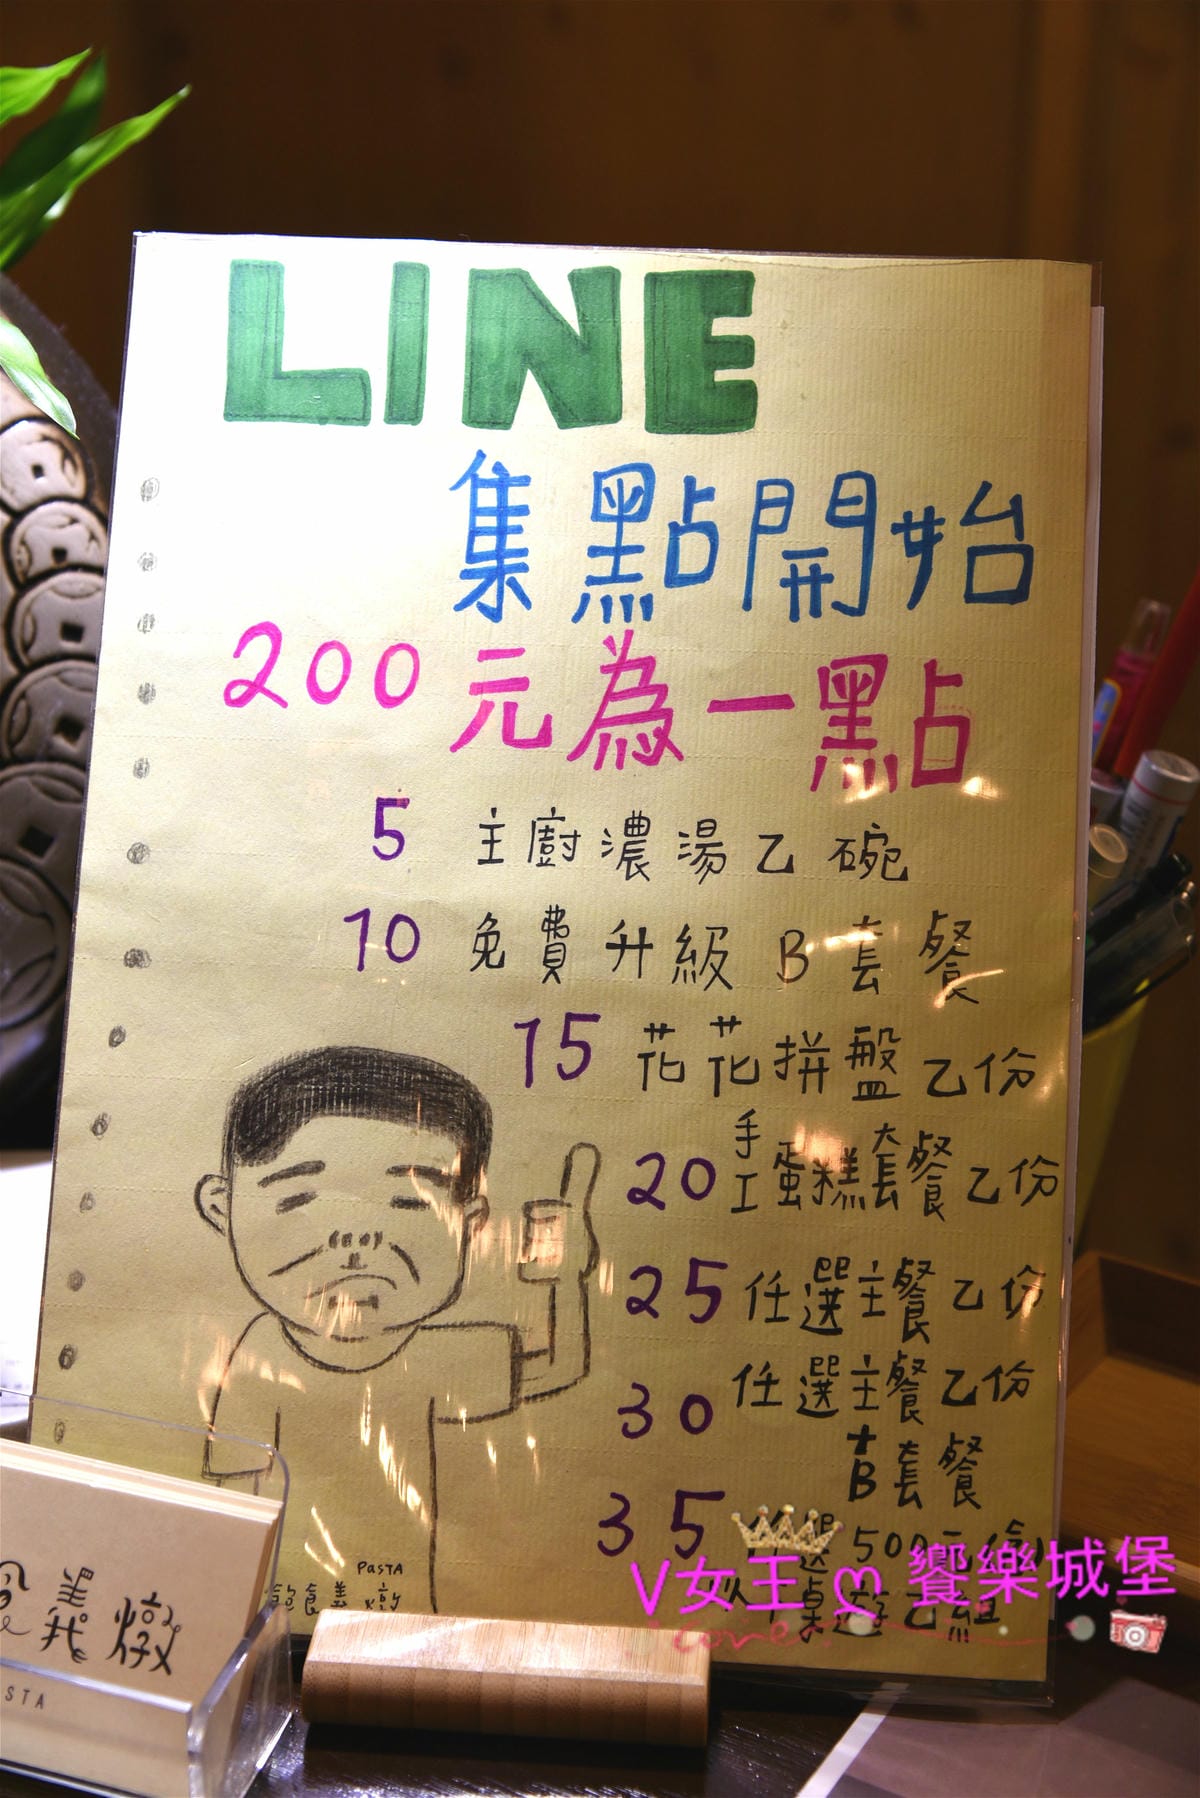 LINE
集點開始
200元為一點
5 主廚濃湯乙碗
10 免費升級B套餐
15 花花拼盤乙份
20 手工蛋糕套餐乙份
25 任選主餐乙份
30 任選主餐乙份
+B套餐
35 任選500元(含)
以下桌遊乙組
PASTA
飽食義燉
義燉
STA
V女王 ღ 饗樂城堡